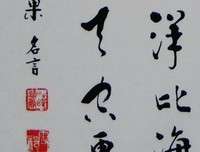 洋比海
天空更
果名言